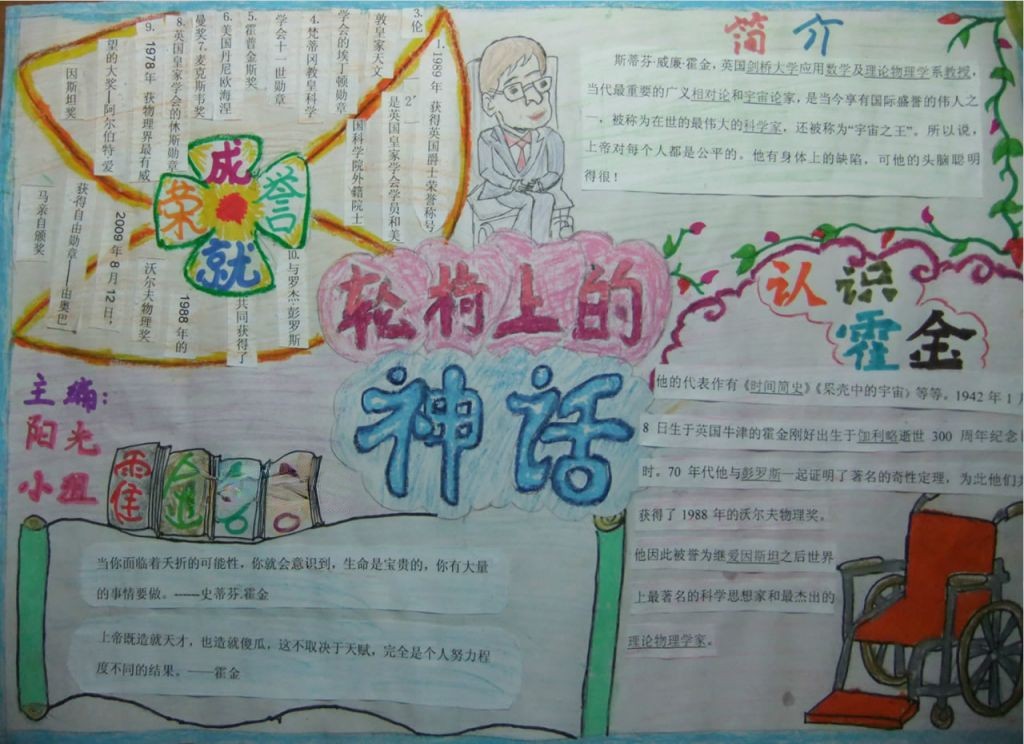 简介
斯蒂芬·威廉·霍金，英国剑桥大学应用数学及理论物理学系教授，
当代最重要的广义相对论和宇宙论家，是当今享有国际盛誉的伟人之
一，被称为在世的最伟大的科学家，还被称为“宇宙之王”。所以说，
上帝对每个人都是公平的。他有身体上的缺陷，可他的头脑聪明
得很！
成就
荣誉
1. 1989 年 获得英国爵士荣誉称号
2 是英国皇家学会学员和美
国科学院外籍院士
3. 伦
敦皇家天文
学会的埃丁顿勋章
4. 梵蒂冈教皇科学
学会十一世勋章
5. 霍普金斯奖
6. 美国丹尼欧海涅
曼奖 7. 麦克斯韦奖
8. 英国皇家学会的休斯勋章
9. 1978 年 获物理界最有威
望的大奖—阿尔伯特·爱
因斯坦奖
10. 与罗杰·彭罗斯
共同获得了
1988 年的
沃尔夫物理奖
2009 年 8 月 12 日，
获得自由勋章——由奥巴
马亲自颁奖
轮椅上的
神话
认识
霍金
他的代表作有《时间简史》《果壳中的宇宙》等等。1942 年 1 月
8 日生于英国牛津的霍金刚好出生于伽利略逝世 300 周年纪念
时。70 年代他与彭罗斯一起证明了著名的奇性定理，为此他们
获得了 1988 年的沃尔夫物理奖。
他因此被誉为继爱因斯坦之后世界
上最著名的科学思想家和最杰出的
理论物理学家。
主编：
阳光
小组
霍金
当你面临着夭折的可能性，你就会意识到，生命是宝贵的，你有大量
的事情要做。-----史蒂芬.霍金
上帝既造就天才，也造就傻瓜，这不取决于天赋，完全是个人努力程
度不同的结果。——霍金